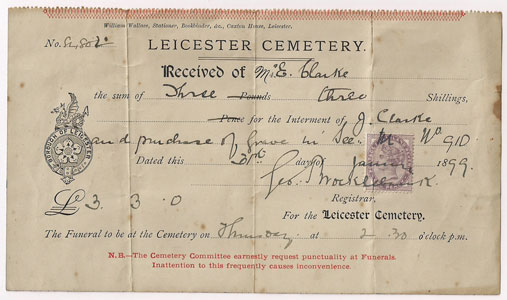 William Wallace, Stationer, Bookbinder, &c., Caxton House, Leicester.
No.
LEICESTER CEMETERY.
Received of Mr E. Clarke
the sum of Three Pounds three Shillings,
Pence for the Interment of J. Clarke
and purchase of Grave in Sec. M No 91D
Dated this 3rd day of January 1899.
Geo.
Registrar,
BOROUGH OF LEICESTER
£ 3. 3. 0
For the Leicester Cemetery.
The Funeral to be at the Cemetery on Thursday at 2.30 o'clock p.m.
N.B.—The Cemetery Committee earnestly request punctuality at Funerals.
Inattention to this frequently causes inconvenience.